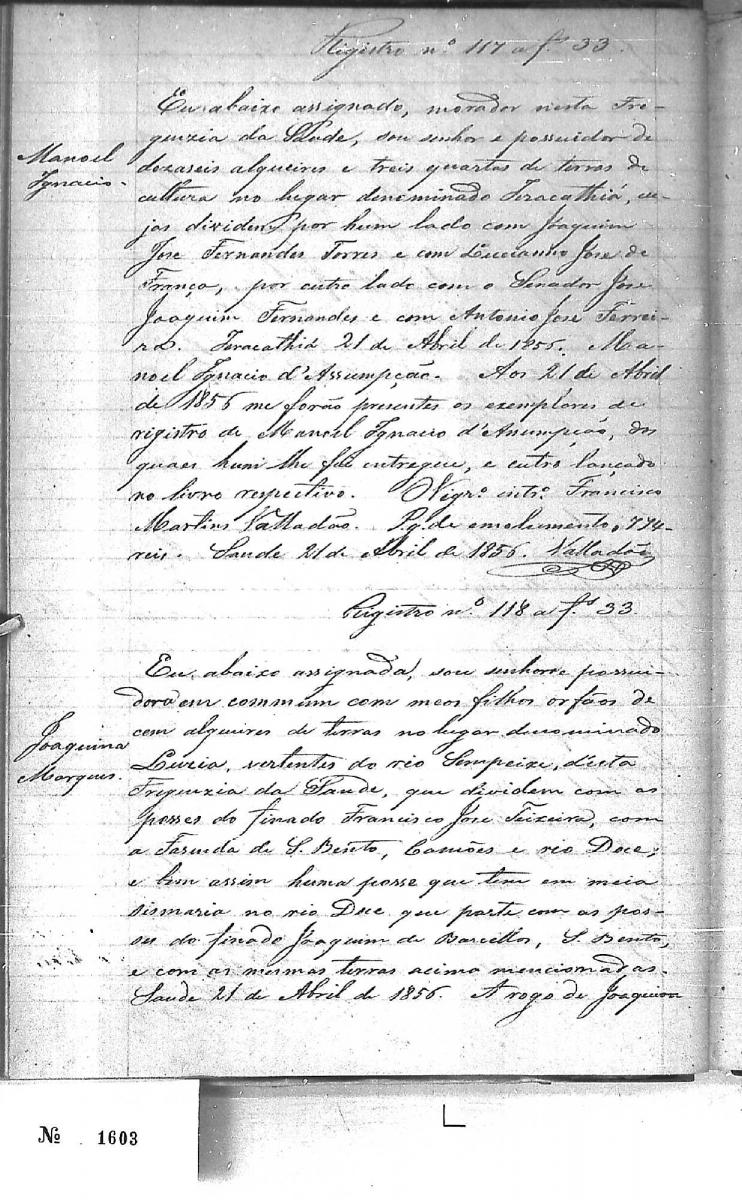 Registro nº 117 a fs 33.
Eu abaixo assignado, morador nesta Fre-
guezia da Saude, sou senhor e possuidor de
Manoel
Ignacio.
dezaseis alqueires e treis quartas de terras de
cultura no lugar denominado Jeracathiá, cu-
jas dividem por hum lado com Joaquim
Jose Fernandes Torres e com Lucianno Jose de
França, por outro lado com o Senador Jose
Joaquim Fernandes e com Antonio Jose Ferrei-
ra. Jeracathiá 21 de Abril de 1856. Ma-
noel Ignacio d'Assumpção. Aos 21 de Abril
de 1856 me forão presentes os exemplares de
registro de Manoel Ignacio d'Assumpção, dos
quaes hum lhe foi entregue, e outro lançado
no livro respectivo. O Vigrº entº Francisco
Martins Valladão. Pg. de emolumento, 774
reis. Saude 21 de Abril de 1856. Valladão
Registro nº 118 a fs 33.
Eu, abaixo assignada, sou senhora e possui-
dora em commum com meos filhos orfãos de
cem alqueires de terras no lugar denominado
Joaquina
Marques.
Luzia, vertentes do rio Sempeixe, d'esta
Freguezia da Saude, que dividem com as
posses do finado Francisco Jose Teixeira, com
a Fasenda de S. Bento, Camões e rio Doce;
e bem assim huma posse que tem em meia
sismaria no rio Doce que parte com as pos-
ses do finado Joaquim de Barcellos, S. Bento,
e com as mesmas terras acima mencionadas.
Saude 21 de Abril de 1856. A rogo de Joaquina
Nº 1603